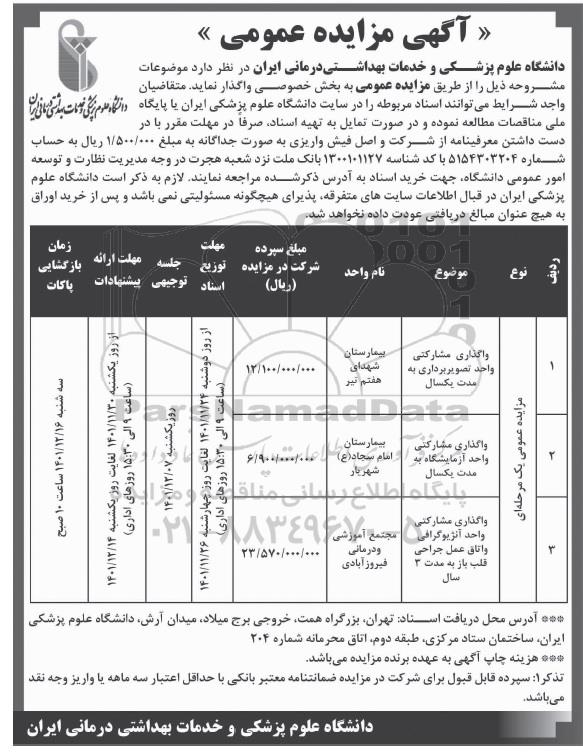 « آگهی مزایده عمومی »
دانشگاه علوم پزشکی و خدمات بهداشتی درمانی ایران
دانشگاه علوم پزشکی و خدمات بهداشتی‌درمانی ایران در نظر دارد موضوعات
مشروحه ذیل را از طریق مزایده عمومی به بخش خصوصی واگذار نماید. متقاضیان
واجد شرایط می‌توانند اسناد مربوطه را در سایت دانشگاه علوم پزشکی ایران یا پایگاه
ملی مناقصات مطالعه نموده و در صورت تمایل به تهیه اسناد، صرفاً در مهلت مقرر با در
دست داشتن معرفینامه از شرکت و اصل فیش واریزی به صورت جداگانه به مبلغ ۱/۵۰۰/۰۰۰ ریال به حساب
شماره ۵۱۵۴۳۰۳۲۰۴ با کد شناسه ۱۳۰۰۱۰۱۱۲۷ بانک ملت نزد شعبه هجرت در وجه مدیریت نظارت و توسعه
امور عمومی دانشگاه، جهت خرید اسناد به آدرس ذکرشده مراجعه نمایند. لازم به ذکر است دانشگاه علوم
پزشکی ایران در قبال اطلاعات سایت های متفرقه، پذیرای هیچگونه مسئولیتی نمی باشد و پس از خرید اوراق
به هیچ عنوان مبالغ دریافتی عودت داده نخواهد شد.
ردیف
نوع
موضوع
نام واحد
مبلغ سپرده شرکت در مزایده (ریال)
مهلت توزیع اسناد
جلسه توجیهی
مهلت ارائه پیشنهادات
زمان بازگشایی پاکات
۱
مزایده عمومی یک مرحله‌ای
واگذاری مشارکتی
واحد تصویربرداری به
مدت یکسال
بیمارستان
شهدای
هفتم تیر
۱۲/۱۰۰/۰۰۰/۰۰۰
از روز دوشنبه ۱۴۰۱/۱۱/۲۴ لغایت روز چهارشنبه ۱۴۰۱/۱۱/۲۶
(ساعت ۹ الی ۱۵:۳۰ روزهای اداری)
روز یکشنبه ۱۴۰۱/۱۲/۰۷
از روز یکشنبه ۱۴۰۱/۱۱/۳۰ لغایت روز یکشنبه ۱۴۰۱/۱۲/۱۴
(ساعت ۹ الی ۱۵:۳۰ روزهای اداری)
سه شنبه ۱۴۰۱/۱۲/۱۶ ساعت ۱۰ صبح
۲
واگذاری مشارکتی
واحد آزمایشگاه به
مدت یکسال
بیمارستان
امام سجاد(ع)
شهریار
۶/۹۰۰/۰۰۰/۰۰۰
۳
واگذاری مشارکتی
واحد آنژیوگرافی
واتاق عمل جراحی
قلب باز به مدت ۳
سال
مجتمع آموزشی
ودرمانی
فیروزآبادی
۲۳/۵۷۰/۰۰۰/۰۰۰
ParsNamadData
پایگاه اطلاع رسانی مناقصه و مزایده
۰۲۱-۸۸۳۴۹۶۷۰-۵
*** آدرس محل دریافت اسناد: تهران، بزرگراه همت، خروجی برج میلاد، میدان آرش، دانشگاه علوم پزشکی
ایران، ساختمان ستاد مرکزی، طبقه دوم، اتاق محرمانه شماره ۲۰۴
*** هزینه چاپ آگهی به عهده برنده مزایده می‌باشد.
تذکر۱: سپرده قابل قبول برای شرکت در مزایده ضمانتنامه معتبر بانکی با حداقل اعتبار سه ماهه یا واریز وجه نقد
می‌باشد.
دانشگاه علوم پزشکی و خدمات بهداشتی درمانی ایران